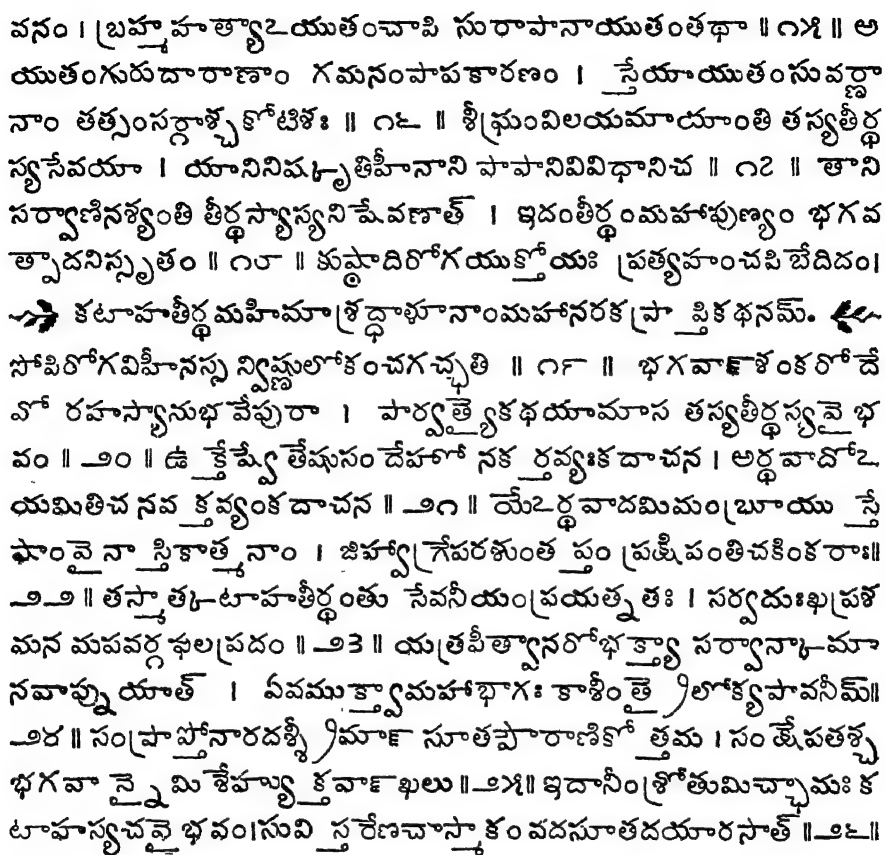 వనం । బ్రహ్మహత్యాఽయుతంచాపి సురాపానాయుతంతథా ॥ ౧౫ ॥ అ
యుతంగురుదారాణాం గమనంపాపకారణం । స్తేయాయుతంసువర్ణా
నాం తత్సంసర్గాశ్చకోటిశః ॥ ౧౬ ॥ శీఘ్రంవిలయమాయాంతి తస్యతీర్థ
స్యసేవయా । యానినిష్కృతిహీనాని పాపానివివిధానిచ ॥ ౧౭ ॥ తాని
సర్వాణినశ్యంతి తీర్థస్యాస్యనిషేవణాత్ । ఇదంతీర్థంమహాపుణ్యం భగవ
త్పాదనిస్సృతం ॥ ౧౮ ॥ కుష్ఠాదిరోగయుక్తోయః ప్రత్యహంచపిబేదిదం।
కటాహతీర్థమహిమాశ్రద్ధాళూనాంమహానరకప్రాప్తికథనమ్.
సోపిరోగవిహీనస్స న్విష్ణులోకంచగచ్ఛతి ॥ ౧౯ ॥ భగవాన్శంకరోదే
వో రహస్యానుభవేపురా । పార్వత్యైకథయామాస తస్యతీర్థస్యవైభ
వం ॥ ౨౦ ॥ ఉక్తేష్వేతేషుసందేహో నకర్తవ్యఃకదాచన । అర్థవాదోఽ
యమితిచ నవక్తవ్యంకదాచన ॥ ౨౧ ॥ యేఽర్థవాదమిమంబ్రూయు స్తే
షాంవైనాస్తికాత్మనాం । జిహ్వాగ్రేపరశుంతప్తం ప్రక్షిపంతిచకింకరాః॥
౨౨ ॥ తస్మాత్కటాహతీర్థంతు సేవనీయంప్రయత్నతః । సర్వదుఃఖప్రశ
మన మపవర్గఫలప్రదం ॥ ౨౩ ॥ యత్రపీత్వానరోభక్త్యా సర్వాన్కామా
నవాప్నుయాత్ । ఏవముక్త్వామహాభాగః కాశీంత్రైలోక్యపావనీమ్॥
౨౪ ॥ సంప్రాప్తోనారదశ్శ్రీమాన్ సూతపౌరాణికోత్తమ । సంక్షేపతశ్చ
భగవా న్నైమిశేహ్యుక్తవాన్ ఖలు ॥౨౫॥ ఇదానీంశ్రోతుమిచ్ఛామః క
టాహస్యచవైభవం।సువిస్తరేణచాస్మాకం వదసూతదయారసాత్ ॥౨౬॥